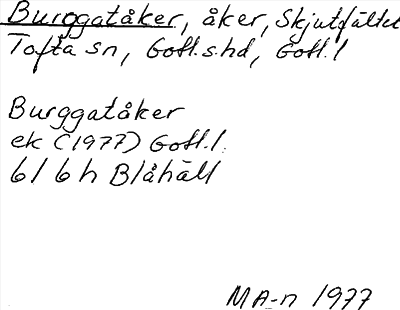 Burggatåker, åker, Skjutfältet
Tofta sn, Gotl.s.hd, Gotl.l
Burggatåker
ek (1977) Gotl.l.
6I 6h Blåhäll
MA-n 1977